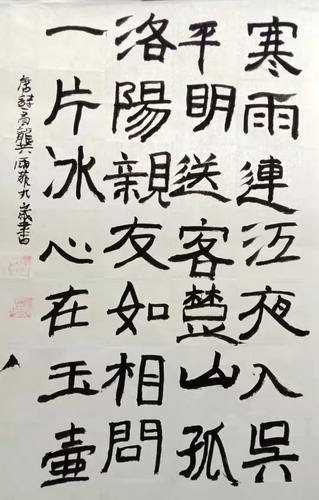 寒雨連江夜入吳
平明送客楚山孤
洛陽親友如相問
一片冰心在玉壺
唐詩一首龔雨菲九歲書